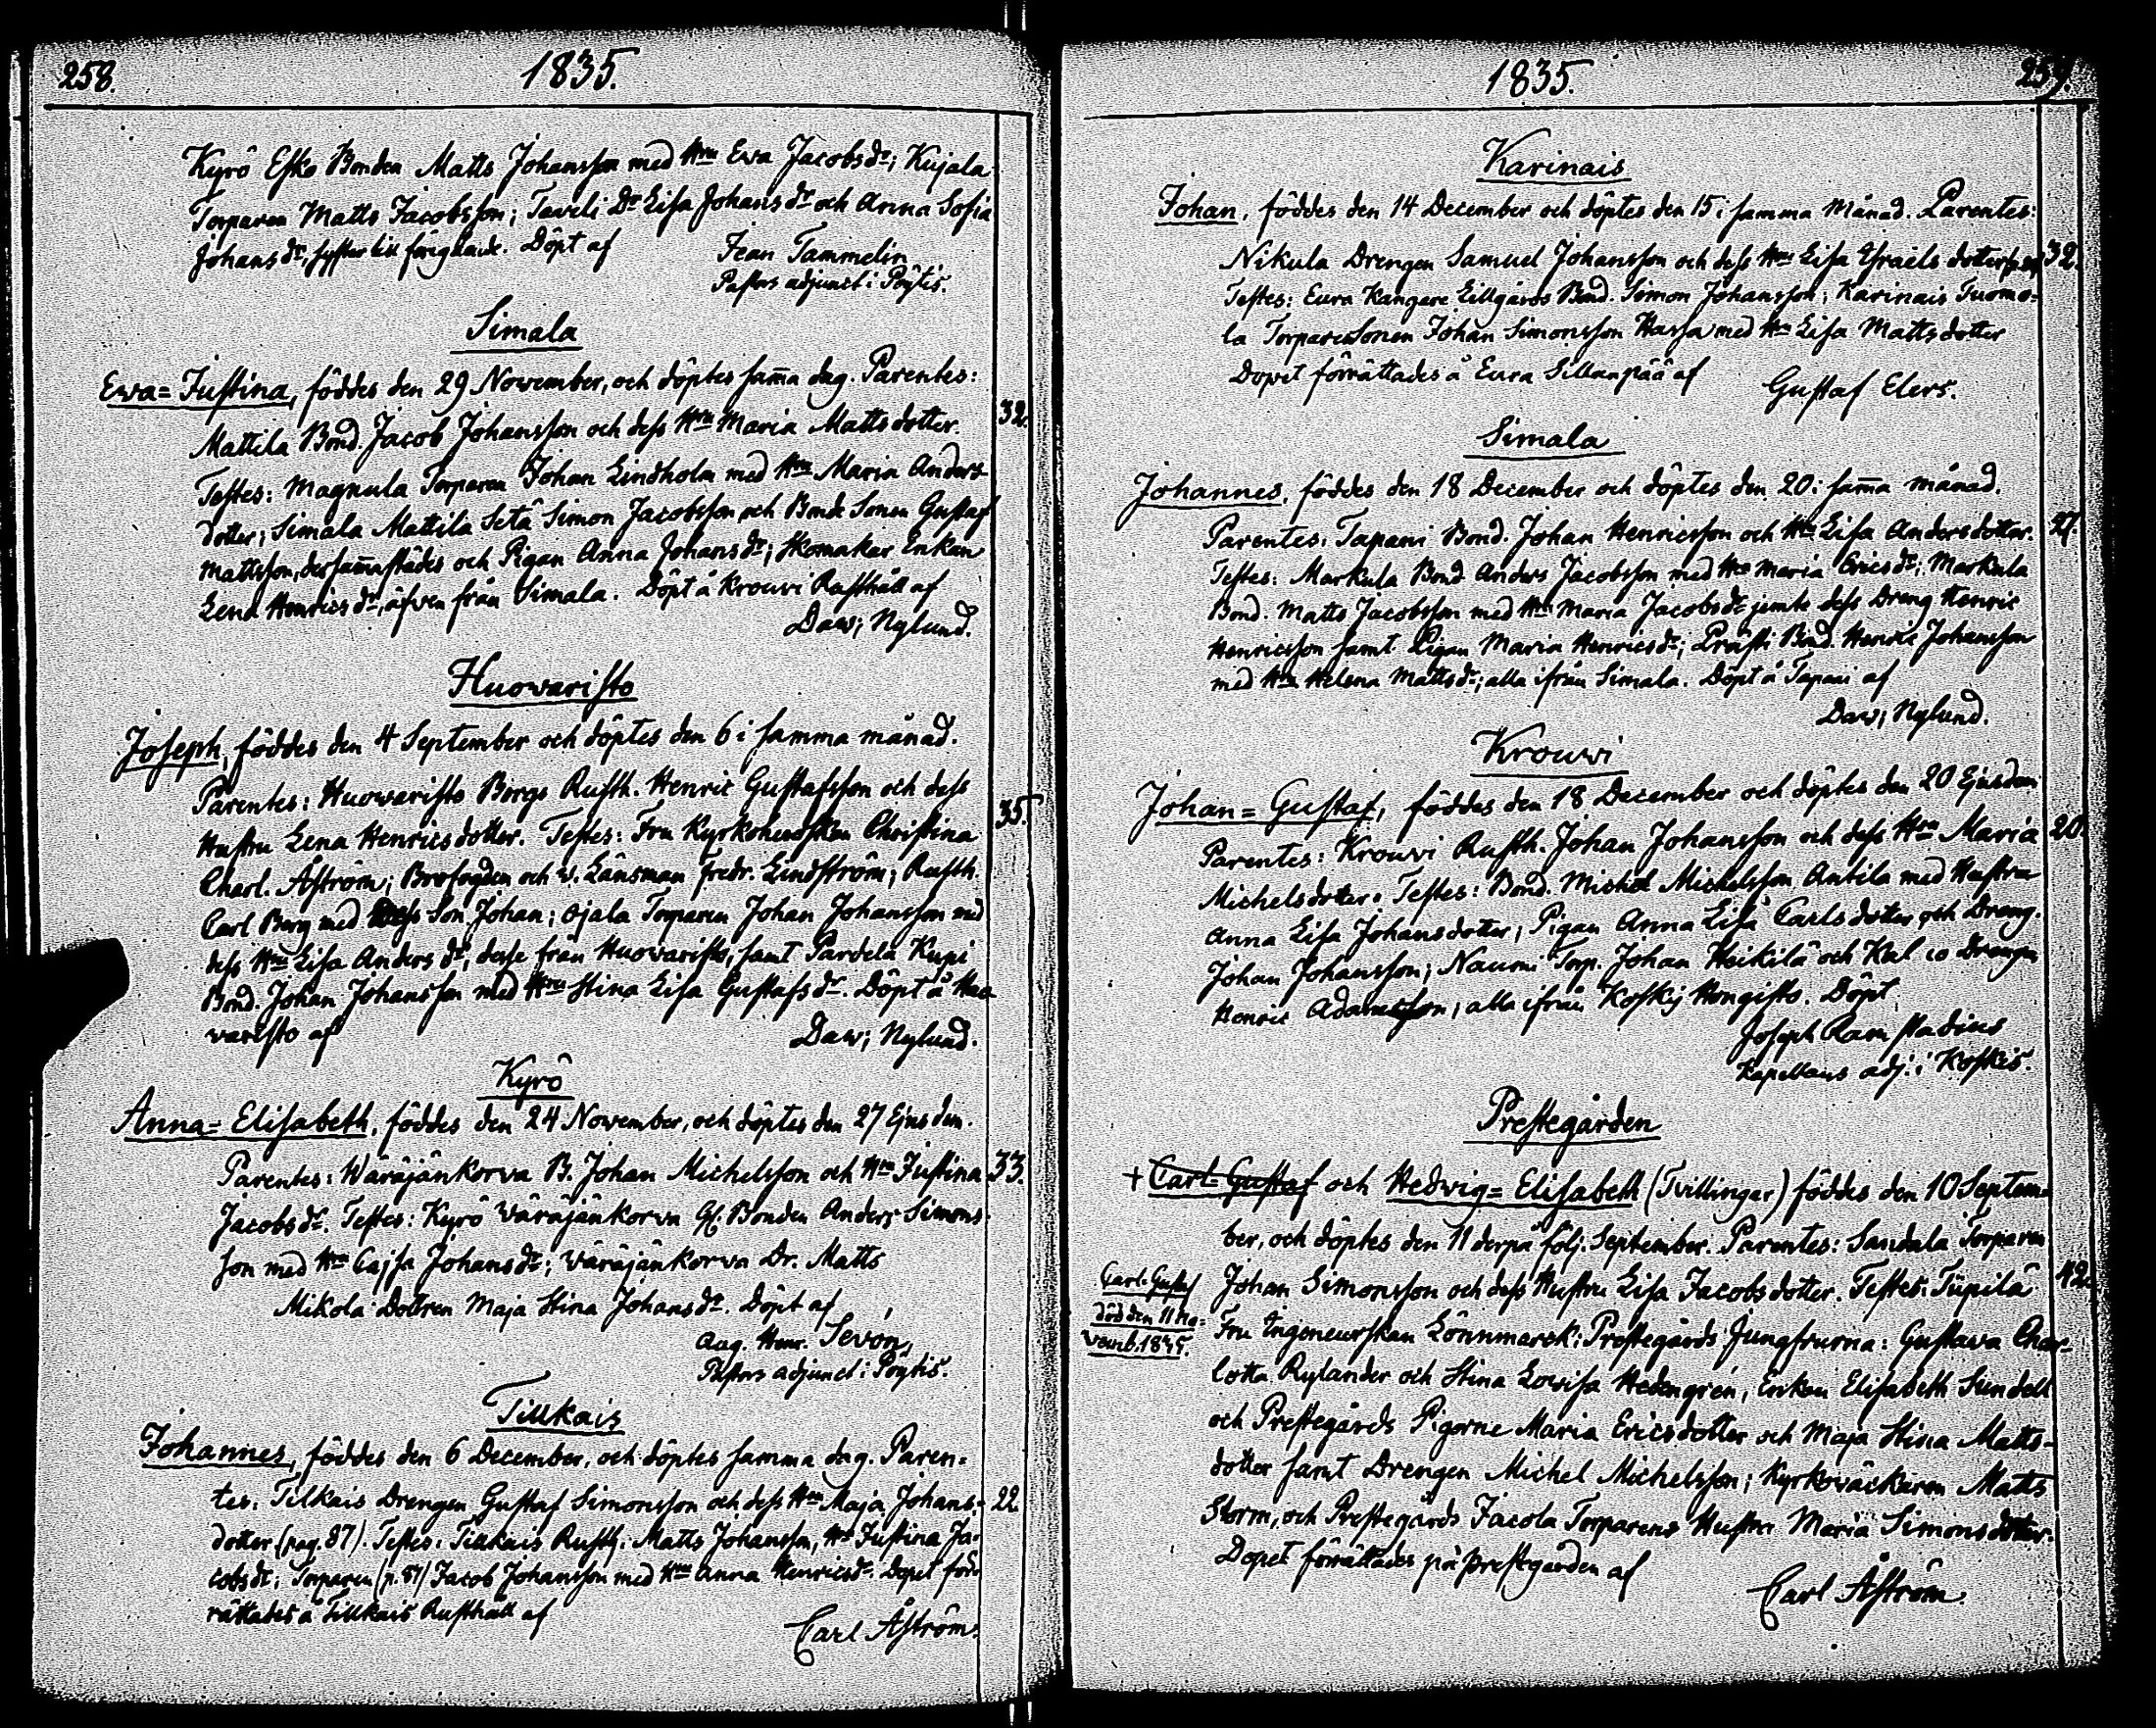 258.
1835.
Kyrö Esko Bonden Matts Johansson med Hru Ewa Jacobsdr; Kujala
Torparen Matts Jacobsson; Tavili Dr Lisa Johansdr och Anna Sofia
Johansdr, syster till förignäde. Döpt af Jean Tammelin
Pastors adjunct i Pöytis.
Simala
Ewa=Justina, föddes den 29 November, och döptes sam̄a dag. Parentes:
Mattila Bond. Jacob Johansson och dess Hru Maria Matts dotter. 32.
Testes: Magnula Torparen Johan Lindholm med Hru Maria Anders-
dotter; Simala Mattila Setä Simon Jacobsson och Bonde Sonen Gustaf
Mattsson, dersam̄astädes och Pigan Anna Johansdr; Skomakar Enkan
Lena Henricsdr, äfven från Simala. Döpt å Krouvi Rusthåll af
Daw; Nylund.
Huowaristo
Joseph, föddes den 4 September och döptes den 6 i samma månad.
Parentes: Huowaristo Borgs Rusth. Henric Gustafsson och dess
Hustru Lena Henricsdotter. Testes: Fru Kyrkoherdskan Christina 35.
Charl. Åström; Brofogden och v. Länsman Fredr. Lindström; Rusth.
Carl Borg med dess Son Johan; Ojala Torparen Johan Johansson med
dess Hru Lisa Andersdr, desse från Huowaristo, samt Pardela Kupi
Bond. Johan Johansson med Hru Stina Lisa Gustafsdr. Döpt å Huo-
waristo af
Daw; Nylund.
Kyrö
Anna=Elisabeth, föddes den 24 November, och döptes den 27 Ejusdem.
Parentes: Wäräjänkorva B. Johan Michelsson och Hru Justina 33.
Jacobsdr. Testes: Kyrö Wäräjänkorva Gl. Bonden Anders Simons-
son med Hru Cajsa Johansdr; Wäräjänkorva Dr. Matts
Mikola Dottren Maja Stina Johansdr. Döpt af
Aug. Henr. Sevón,
Pastors adjunct i Pöytis.
Tillkais
Johannes, föddes den 6 December, och döptes samma dag. Paren=
tes: Tilkais Drengen Gustaf Simonsson och dess Hru Maja Johans= 22.
dotter (pag. 87). Testes: Tillkais Rusth. Matts Johansson, Hru Justina Ja-
cobsdr; Torparen (p. 87) Jacob Johansson med Hru Anna Henricsdr. Dopet för-
rättades å Tillkais Rusthåll af
Carl Åström.
1835.
259.
Karinais
Johan, föddes den 14 December och döptes den 15 i samma Månad. Parentes:
Nikula Drengen Samuel Johansson och dess Hru Lisa Israëls dotter 32.
Testes: Eura Kangare Lillgårds Bond. Simon Johansson; Karinais Tuomo-
la TorpareSonen Johan Simonsson Hassa med Hru Lisa Mattsdotter
Dopet förrättades å Eura Sillanpää af
Gustaf Elers.
Simala
Johannes, föddes den 18 December och döptes den 20 i sam̄a månad.
Parentes: Tapani Bond. Johan Henricsson och Hru Lisa Andersdotter. 27.
Testes: Markula Bond Anders Jacobsson med Hru Maria Ericsdr; Markula
Bond. Matts Jacobsson med Hru Maria Jacobsdr jemte dess Dreng Henric
Henricsson samt Pigan Maria Henricsdr; Prästi Bond. Henric Johansson
med Hru Helena Mattsdr; alla ifrån Simala. Döpt å Tapani af
Daw; Nylund.
Krouvi
Johan=Gustaf, föddes den 18 December och döptes den 20 Ejusdem
Parentes: Krouvi Rusth. Johan Johansson och dess Hru Maria 20.
Michelsdotter. Testes: Bond. Michel Michelsson Antila med Hustru
Anna Lisa Johansdotter; Pigan Anna Lisa Carlsdotter och Dreng.
Johan Johansson; Naumi Torp. Johan Heikilä och Drengen
Henric Adamsson, alla ifrån Koskij Hongisto. Döpt
Joseph Ramstadius
Kapellans adj. i Koskis.
Prestegården
+ Carl=Gustaf och Hedvig=Elisabeth (Tvillingar) föddes den 10 Septem-
ber, och döptes den 11 derpå följ. September. Parentes: Sandala Torparen
Johan Simonsson och dess Hustru Lisa Jacobsdotter. Testes: Tüpilä 42.
Carl Gustaf
död den 11 No=
vemb. 1835.
Fru Ingeneurskan Lönnmarck; Prestegårds Jungfrurna: Gustawa Char-
lotta Rylander och Stina Lowisa Hedengrén, Enkan Elisabeth Sundell
och Prestegårds Pigorne Maria Ericsdotter och Maja Stina Matts-
dotter samt Drengen Michel Michelsson; Kyrkoväckaren Matts
Storm, och Prestegårds Jacola Torparens Hustru Maria Simonsdotter.
Dopet förrättades på prestgården af
Carl Åström.